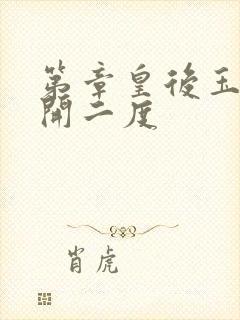 第章皇後玉
開二度
肖虎